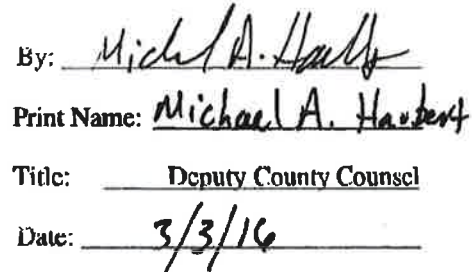 By: Michael A. Haubert
Print Name: Michael A. Haubert
Title: Deputy County Counsel
Date: 3/3/16